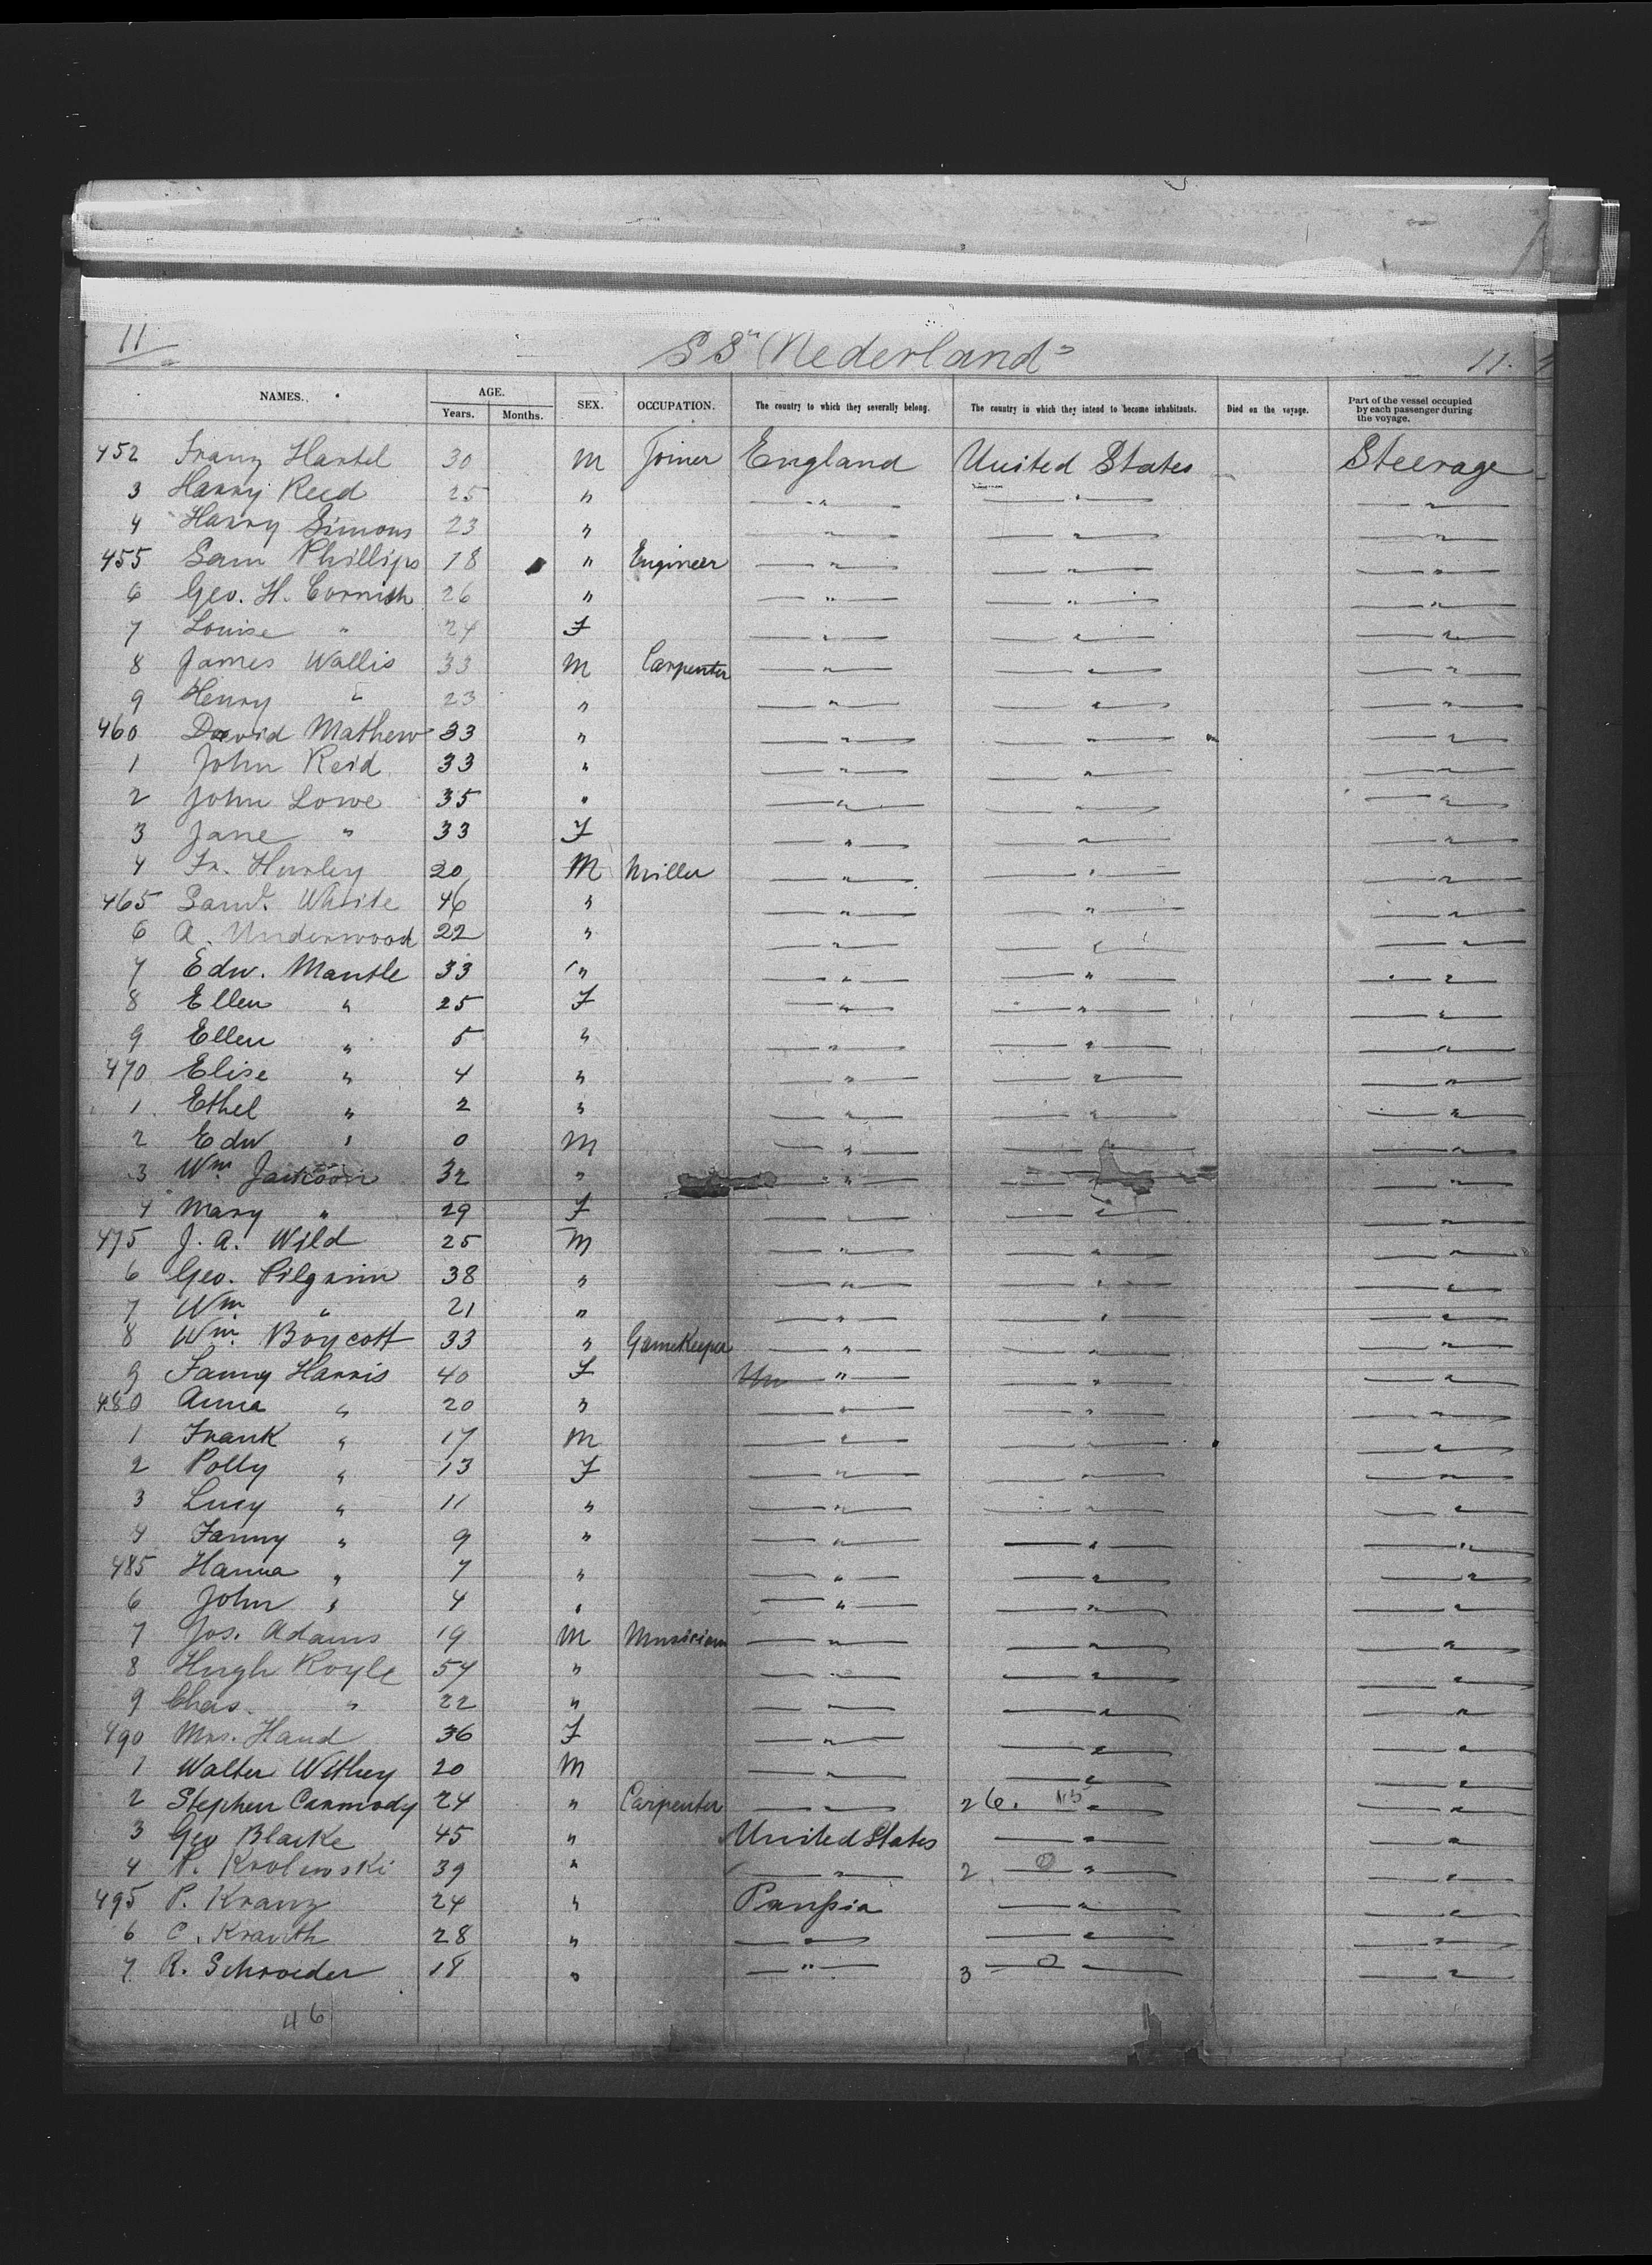 11
SS "Nederland"
11.
NAMES. AGE. SEX. OCCUPATION. The country to which they severally belong. The country in which they intend to become inhabitants. Died on the voyage. Part of the vessel occupied by each passenger during the voyage.
Years. Months.
452 Franz Hartel 30 M Joiner England United States Steerage
3 Harry Reed 25 " " " "
4 Harry Simons 23 " " " "
455 Sam Phillips 18 " Engineer " " "
6 Geo. H. Cornish 26 " " " "
7 Louise " 24 F " " "
8 James Wallis 33 M Carpenter " " "
9 Henry " 23 " " " "
460 David Mathew 33 " " " "
1 John Reid 33 " " " "
2 John Lowe 35 " " " "
3 Jane " 33 F " " "
4 Fr. Hurley 20 M Miller " " "
465 Saml. White 46 " " " "
6 A. Underwood 22 " " " "
7 Edw. Mantle 33 " " " "
8 Ellen " 25 F " " "
9 Ellen " 5 " " " "
470 Elise " 4 " " " "
1 Ethel " 2 " " " "
2 Edw " 0 M " " "
3 Wm. Jackson 32 " " " "
4 Mary " 29 F " " "
475 J. A. Wild 25 M " " "
6 Geo. Pilgrim 38 " " " "
7 Wm " 21 " " " "
8 Wm. Boycott 33 " GameKeeper " " "
9 Fanny Harris 40 F " " "
480 Anna " 20 " " " "
1 Frank " 17 M " " "
2 Polly " 13 F " " "
3 Lucy " 11 " " " "
4 Fanny " 9 " " " "
485 Hanna " 7 " " " "
6 John " 4 " " " "
7 Jos. Adams 19 M Musician " " "
8 Hugh Royle 54 " " " "
9 Chas. " 22 " " " "
490 Mrs. Hand 36 F " " "
1 Walter Withey 20 M " " "
2 Stephen Carmody 24 " Carpenter " 26. " "
3 Geo Blake 45 " United States " "
4 P. Krolewski 39 " " 2 " "
495 P. Kranz 24 " " "
6 C. Krauth 28 " " " "
7 R. Schroeder 18 " " 3 " "
46